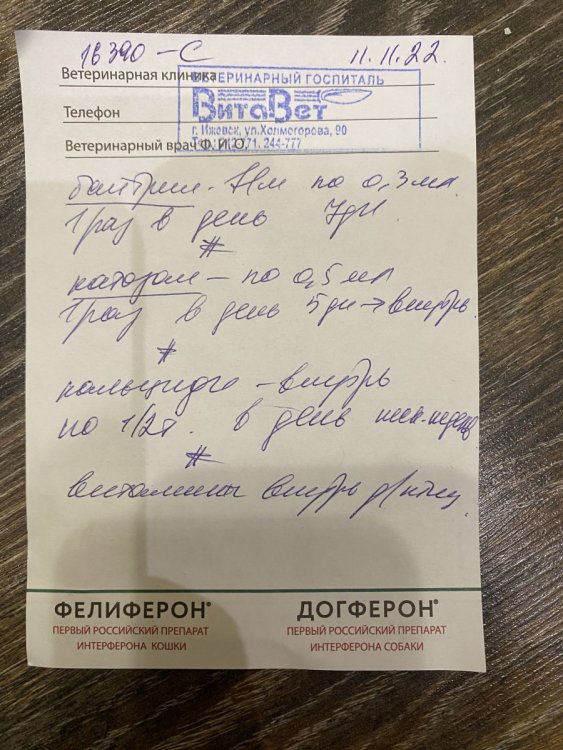 18390 - С 11.11.22.
Ветеринарная клиника
ВЕТЕРИНАРНЫЙ ГОСПИТАЛЬ
ВитаВет
Телефон
г. Ижевск, ул.Холмогорова, 90
244-777
Ветеринарный врач Ф. И. О.
по 0,3 мл
1 раз в день 7 дн
#
катозал - по 0,5 мл
1 раз в день 5 дн → внутрь
#
- внутрь
по 1/2 т. в день
#
витамины внутрь д/птиц
ФЕЛИФЕРОН®
ПЕРВЫЙ РОССИЙСКИЙ ПРЕПАРАТ
ИНТЕРФЕРОНА КОШКИ
ДОГФЕРОН®
ПЕРВЫЙ РОССИЙСКИЙ ПРЕПАРАТ
ИНТЕРФЕРОНА СОБАКИ